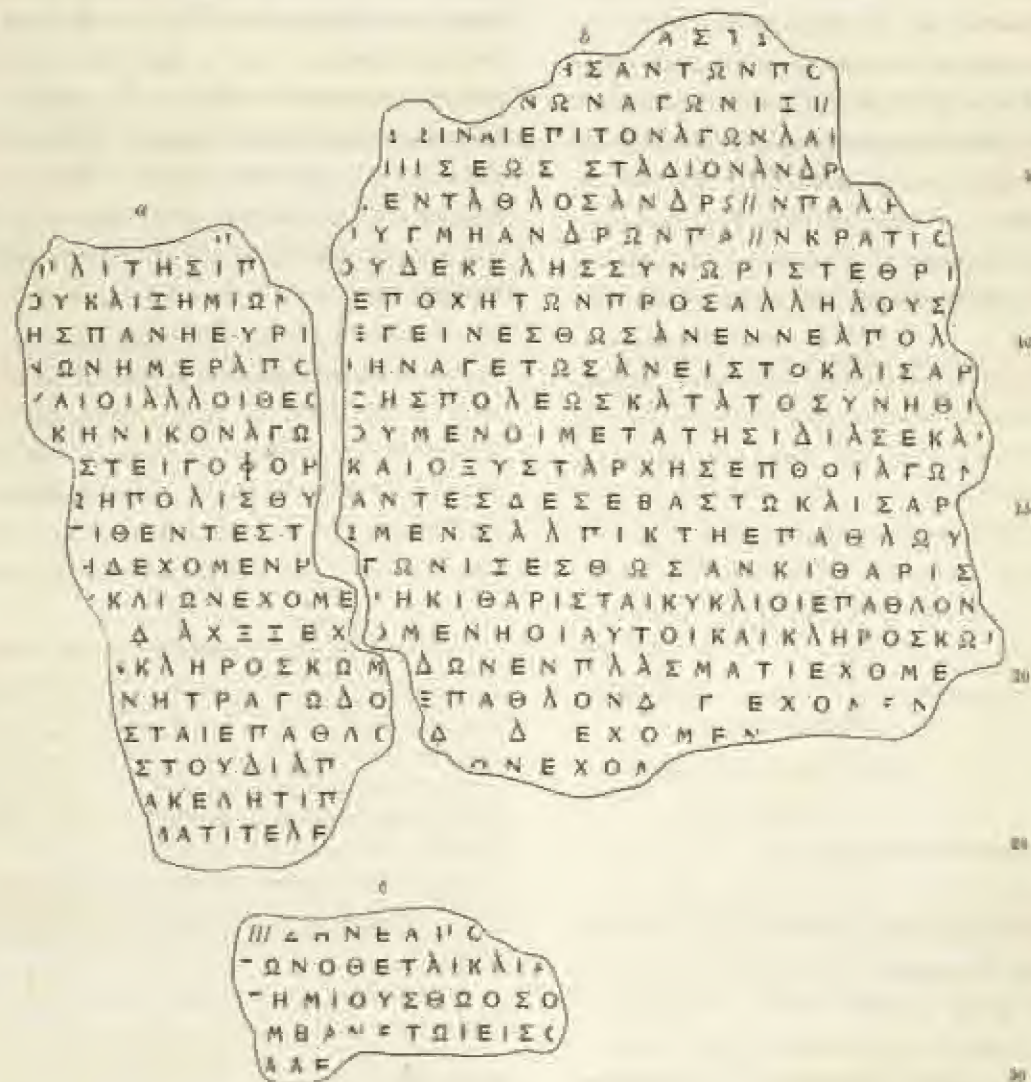 a
ΛΙΤΗΣΙΠ
ΟΥΚΑΙΖΗΜΙΩΡ
ΗΣΠΑΝΗΕΥΡΙ
ΩΝΗΜΕΡΑΠΟ
ΑΙΟΙΑΛΛΟΙΘΕΟ
ΚΗΝΙΚΟΝΑΓΩ
ΣΤΕΙΓΟΦΟΗ
ΩΗΠΟΛΙΣΘΥ
ΤΙΘΕΝΤΕΣΤ
ΗΔΕΧΟΜΕΝΗ
ΚΛΙΩΝΕΧΟΜΕ
Δ ΑΧΞΞΕΧ
ΚΛΗΡΟΣΚΩΜ
ΝΗΤΡΑΓΩΔΟ
ΣΤΑΙΕΠΑΘΛΟ
ΣΤΟΥΔΙΑΠ
ΑΚΕΛΗΤΙΠ
ΑΤΙΤΕΛΕ
b
ΑΣΤΣ
ΗΣΑΝΤΩΝΠΟ
ΝΩΝΑΓΩΝΙΞΙ//
ΩΙΝΑΙΕΠΙΤΟΝΑΓΩΝΑΑΙ
ΙΙΙΣΕΩΣ ΣΤΑΔΙΟΝΑΝΔΡ 5
ΕΝΤΑΘΛΟΣΑΝΔΡ//ΝΠΑΛΗ
ΥΓΜΗΑΝΔΡΩΝΠΑ//ΝΚΡΑΤΙΟ
ΟΥΔΕΚΕΛΗΣΣΥΝΩΡΙΣΤΕΘΡΙ
ΕΠΟΧΗΤΩΝΠΡΟΣΑΛΛΗΛΟΥΣ
ΞΓΕΙΝΕΣΘΩΣΑΝΕΝΝΕΑΠΟΛ 10
ΙΗΝΑΓΕΤΩΣΑΝΕΙΣΤΟΚΑΙΣΑΡ
ΞΗΣΠΟΛΕΩΣΚΑΤΑΤΟΣΥΝΗΘΙ
ΟΥΜΕΝΟΙΜΕΤΑΤΗΣΙΔΙΑΣΕΚΑ
ΚΑΙΟΞΥΣΤΑΡΧΗΣΕΠΘΟΙΑΓΩΝ
ΑΝΤΕΣΔΕΣΕΒΑΣΤΩΚΑΙΣΑΡ 15
ΣΜΕΝΣΑΛΠΙΚΤΗΕΠΑΘΛΩΥ
ΓΩΝΙΞΕΣΘΩΣΑΝΚΙΘΑΡΙΣ
ΗΚΙΘΑΡΙΣΤΑΙΚΥΚΛΙΟΙΕΠΑΘΛΟΝ
ΟΜΕΝΗΟΙΑΥΤΟΙΚΑΙΚΛΗΡΟΣΚΩΙ
ΔΩΝΕΝΠΛΑΣΜΑΤΙΕΧΟΜΕ 20
ΕΠΑΘΛΟΝΔ Γ ΕΧΟΜΕΝ
Δ Δ ΕΧΟΜΕΝ
ΩΝΕΧΟΛ
25
c
ΝΕΑΠΟ
ΤΩΝΟΘΕΤΑΙΚΑΙ
ΤΗΜΙΟΥΣΘΩΟΣΟ
ΜΒΑΝΕΤΩΙΕΙΣΟ
ΑΛΕ 30